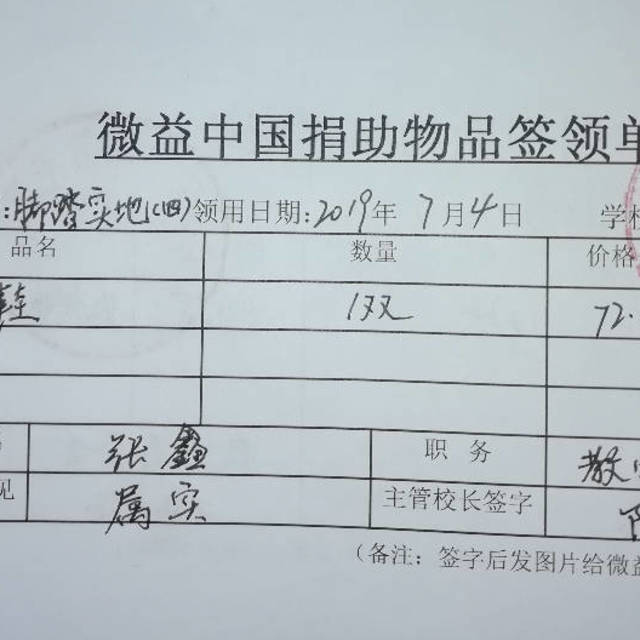 微益中国捐助物品签领单
:脚踏实地(四) 领用日期:2019年 7月4日 学校
品名 数量 价格
鞋 1双 72.
张鑫 职务 教
见 属实 主管校长签字
(备注:签字后发图片给微益